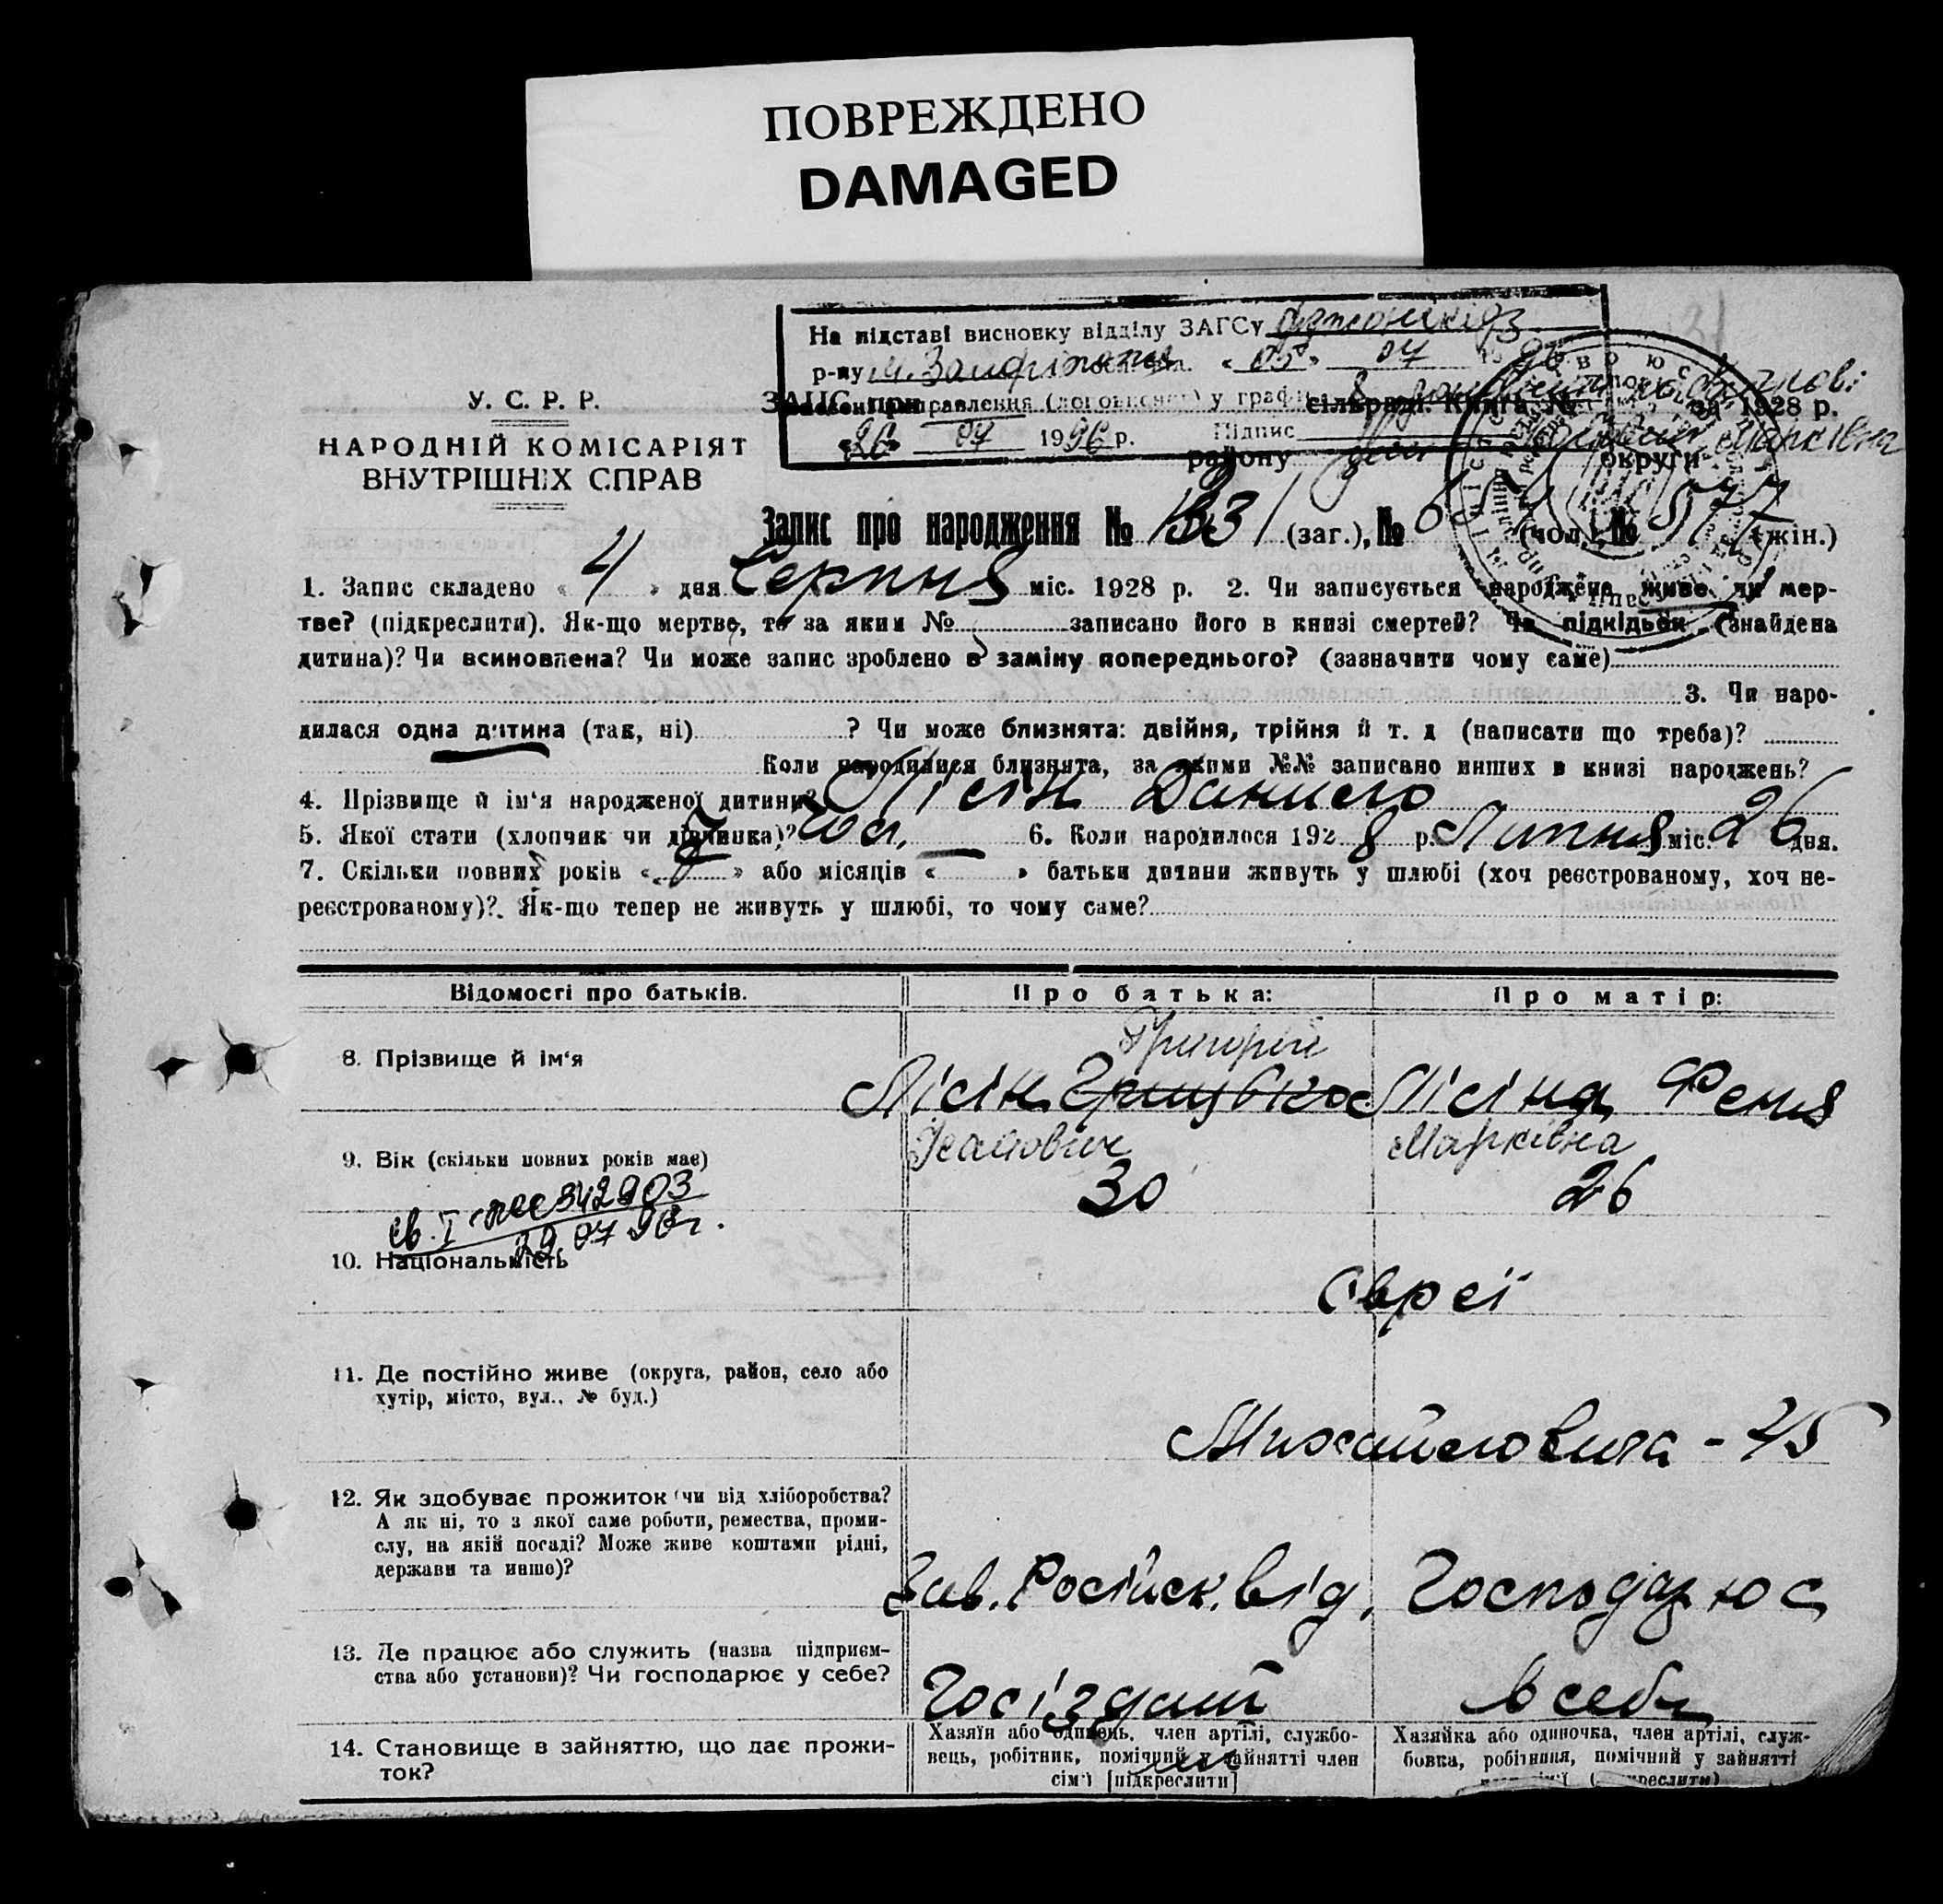 ПОВРЕЖДЕНО
DAMAGED
На підставі висновку відділу ЗАГСу
р-ну м. « 05 » 07 1996
внесені виправлення (доповнення) у графи 8
« 26 » 07 1996 р. Підпис
Марківна
У. С. Р. Р.
НАРОДНІЙ КОМІСАРІЯТ
ВНУТРІШНІХ СПРАВ
ЗАПС при сільраді. Книга № за 1928 р.
району округи
Запис про народження № (заг.), № (чол.), № 577 (жін.)
1. Запис складено « 4 » дня Серпня міс. 1928 р. 2. Чи записується народжене живе чи мер-
тве? (підкреслити). Як-що мертве, то за яким № записано його в книзі смертей? Чи підкідьок (знайдена
дитина)? Чи всиновлена? Чи може запис зроблено в заміну попереднього? (зазначити чому саме)
3. Чи наро-
дилася одна дитина (так, ні) ? Чи може близнята: двійня, трійня й т. д (написати що треба)?
Коли народилися близнята, за якими №№ записано инших в книзі народжень?
4. Прізвище й ім'я народженої дитини? Лісін Данило
5. Якої стати (хлопчик чи дівчинка)? 6. Коли народилося 1928 р. Липня міс. 26 дня.
7. Скільки повних років « » або місяців « — » батьки дитини живуть у шлюбі (хоч реєстрованому, хоч не-
реєстрованому)?. Як-що тепер не живуть у шлюбі, то чому саме?
Відомості про батьків. Про батька: Про матір:
Григорій
8. Прізвище й ім'я Лісін Лісіна Феня
Ісакович Марківна
9. Вік (скільки повних років має) 30 26
св. I 342903
29.07 96г.
10. Національність Євреї
11. Де постійно живе (округа, район, село або
хутір, місто, вул., № буд.) Михайловича - 45
12. Як здобуває прожиток (чи від хліборобства?
А як ні, то з якої саме роботи, ремества, проми-
слу, на якій посаді? Може живе коштами рідні,
держави та инше)? Зав. Російск. від. Господарює
13. Де працює або служить (назва підприєм-
ства або установи)? Чи господарює у себе? в себе
14. Становище в зайняттю, що дає прожи-
ток?
Хазяїн або одинець, член артілі, службо-
вець, робітник, помічний у зайнятті член
сім'ї [підкреслити]
Хазяйка або одиночка, член артілі, служ-
бовка, робітниця, помічний у зайнятті